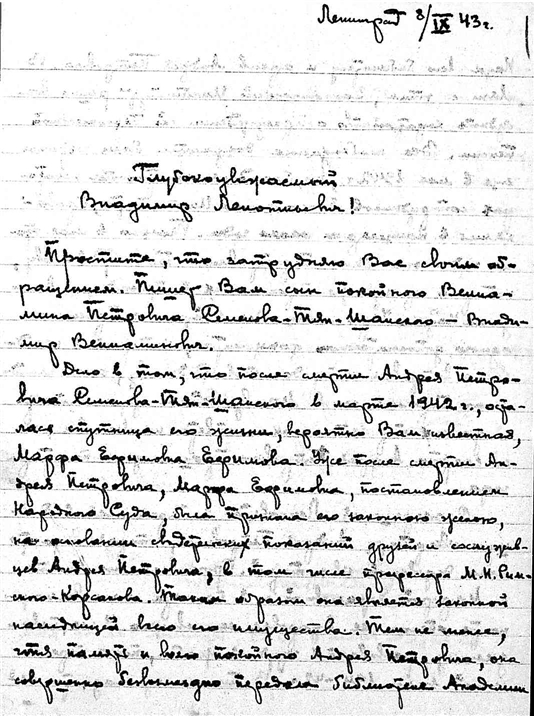 Ленинград 8/IX 43 г.
Глубокоуважаемый
Владимир Леонтьевич!
Простите, что затрудняю Вас своим об-
ращением. Пишет Вам сын покойного Вениа-
мина Петровича Семенова-Тян-Шанского – Влади-
мир Вениаминович.
Дело в том, что после смерти Андрея Петро-
вича Семенова-Тян-Шанского в марте 1942 г., оста-
лась спутница его жизни, вероятно Вам известная,
Марфа Ефимовна Ефимова. Уже после смерти Ан-
дрея Петровича, Марфа Ефимовна, постановлением
Народного Суда, была признана его законной женою,
на основании свидетельских показаний друзей и сослужив-
цев Андрея Петровича, в том числе профессора М.Н. Рим-
ского-Корсакова. Таким образом она является законной
наследницей всего его имущества. Тем не менее,
чтя память и волю покойного Андрея Петровича, она
совершенно безвозмездно передала библиотеке Академии